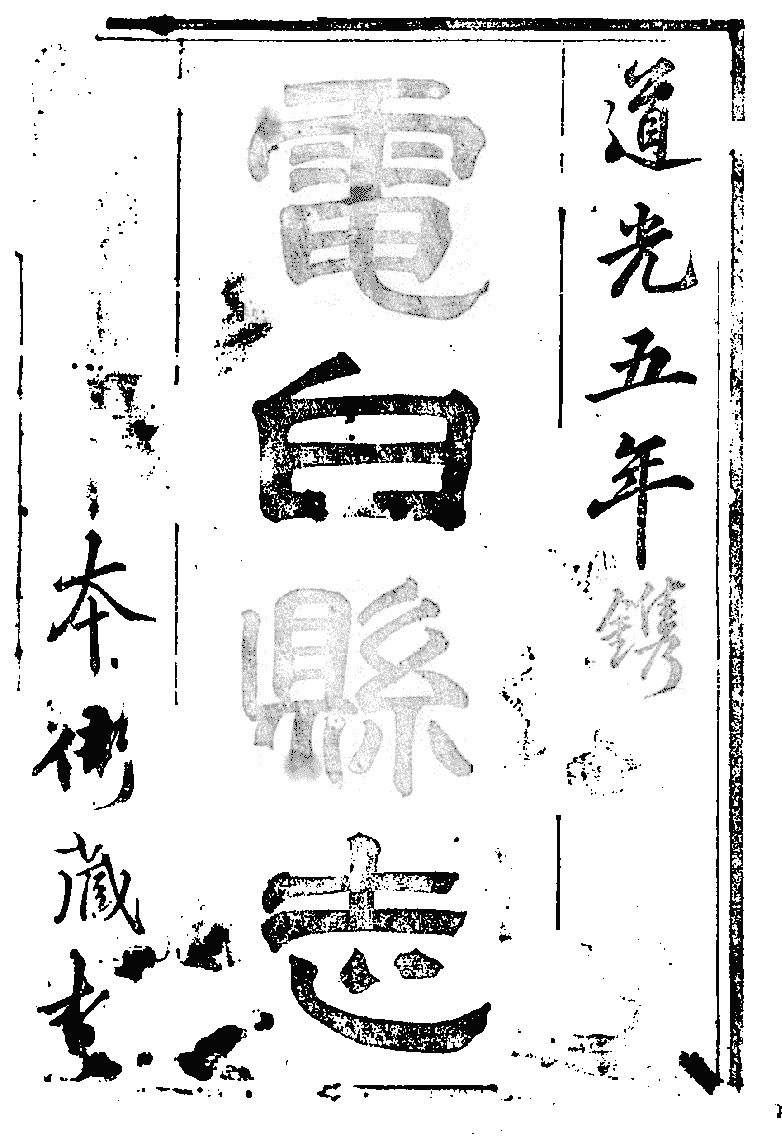 道光五年鎸
電白縣志
本衙藏書